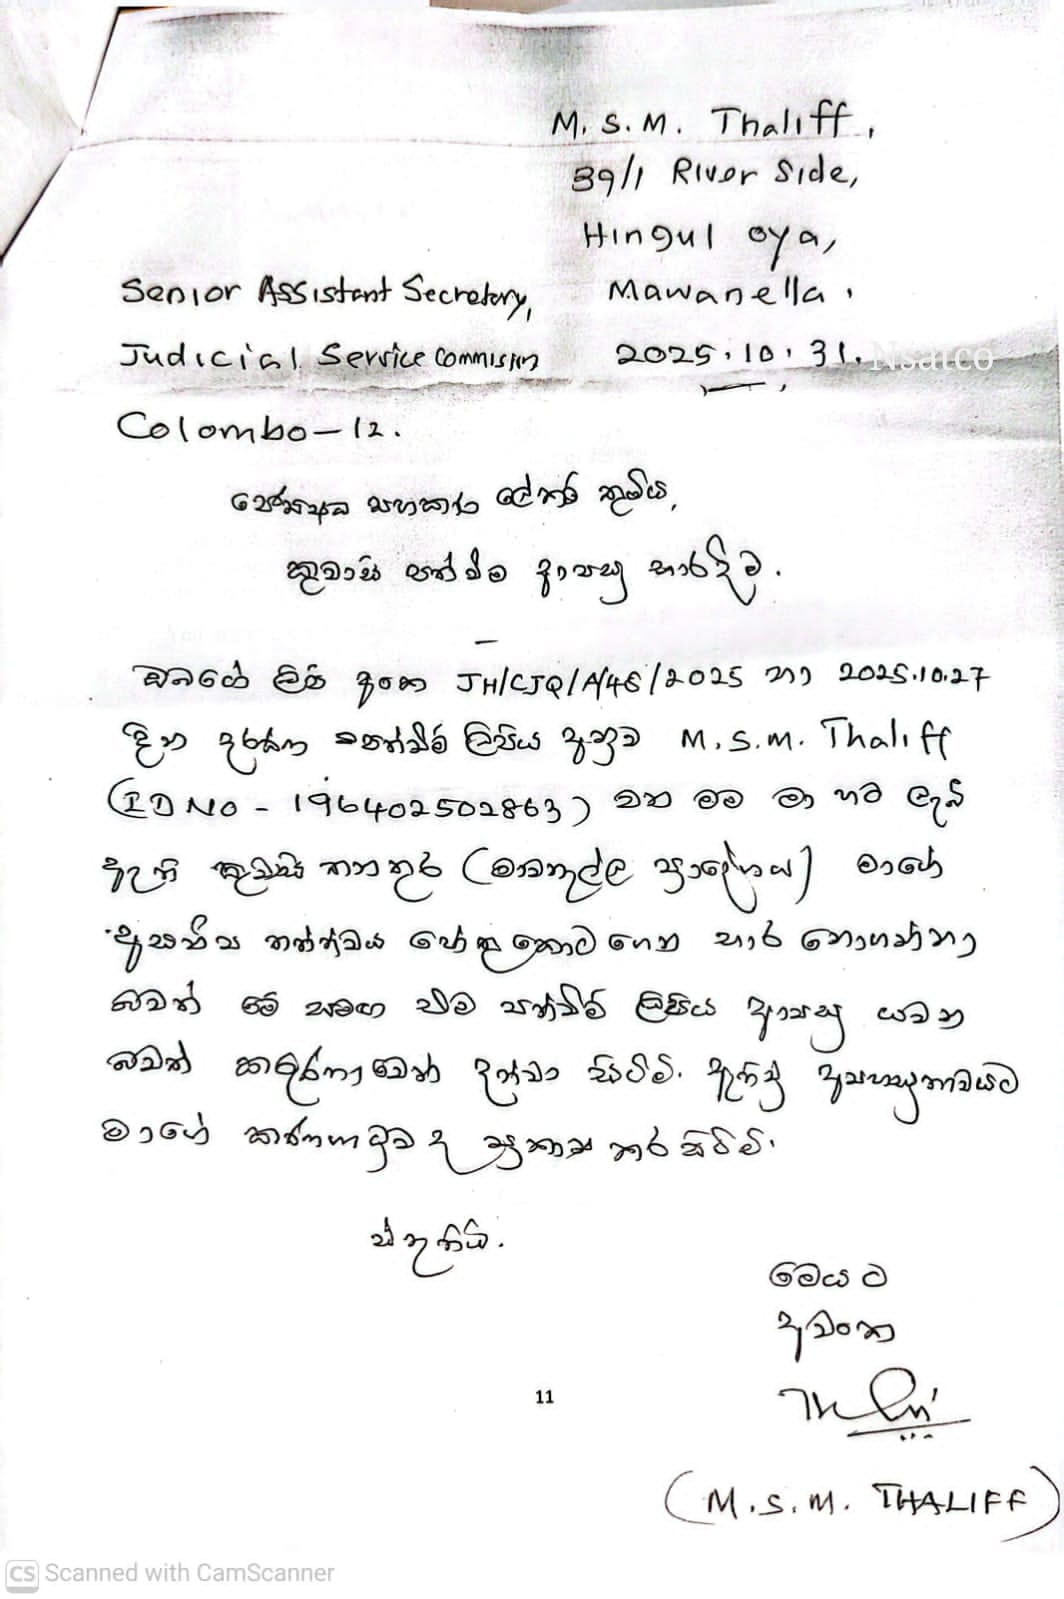 M. S. M. Thaliff,
39/1 River Side,
Hingul oya,
Mawanella.
2025.10.31.
Nsatco
Senior Assistant Secretary,
Judicial Service Commission
Colombo-12.
ජ්‍යෙෂ්ඨ සහකාර ලේකම් තුමිය,
කුවාසි පත්වීම ආපසු භාරදීම.
ඔබගේ ලිපි අංක JH/CJQ/A/46/2025 හා 2025.10.27
දින දරණ පත්වීම් ලිපිය අනුව M.S.M. Thaliff
(ID NO - 196402502863) වන මම මා හට ලැබී
ඇති කුවාසි තනතුර (මාවනැල්ල ප්‍රාදේශීය) මාගේ
අසනීප තත්ත්වය හේතු කොට ගෙන භාර නොගන්නා
බවත් මේ සමඟ එම පත්වීම් ලිපිය ආපසු යවන
බවත් කාරුණිකවෙන් දන්වා සිටිමි. ඇතිවූ අපහසුතාවයට
මාගේ කණගාටුව ද ප්‍රකාශ කර සිටිමි.
ස්තුතියි.
මෙයට
අවංක
11
(M.S.M. THALIFF)
CS Scanned with CamScanner